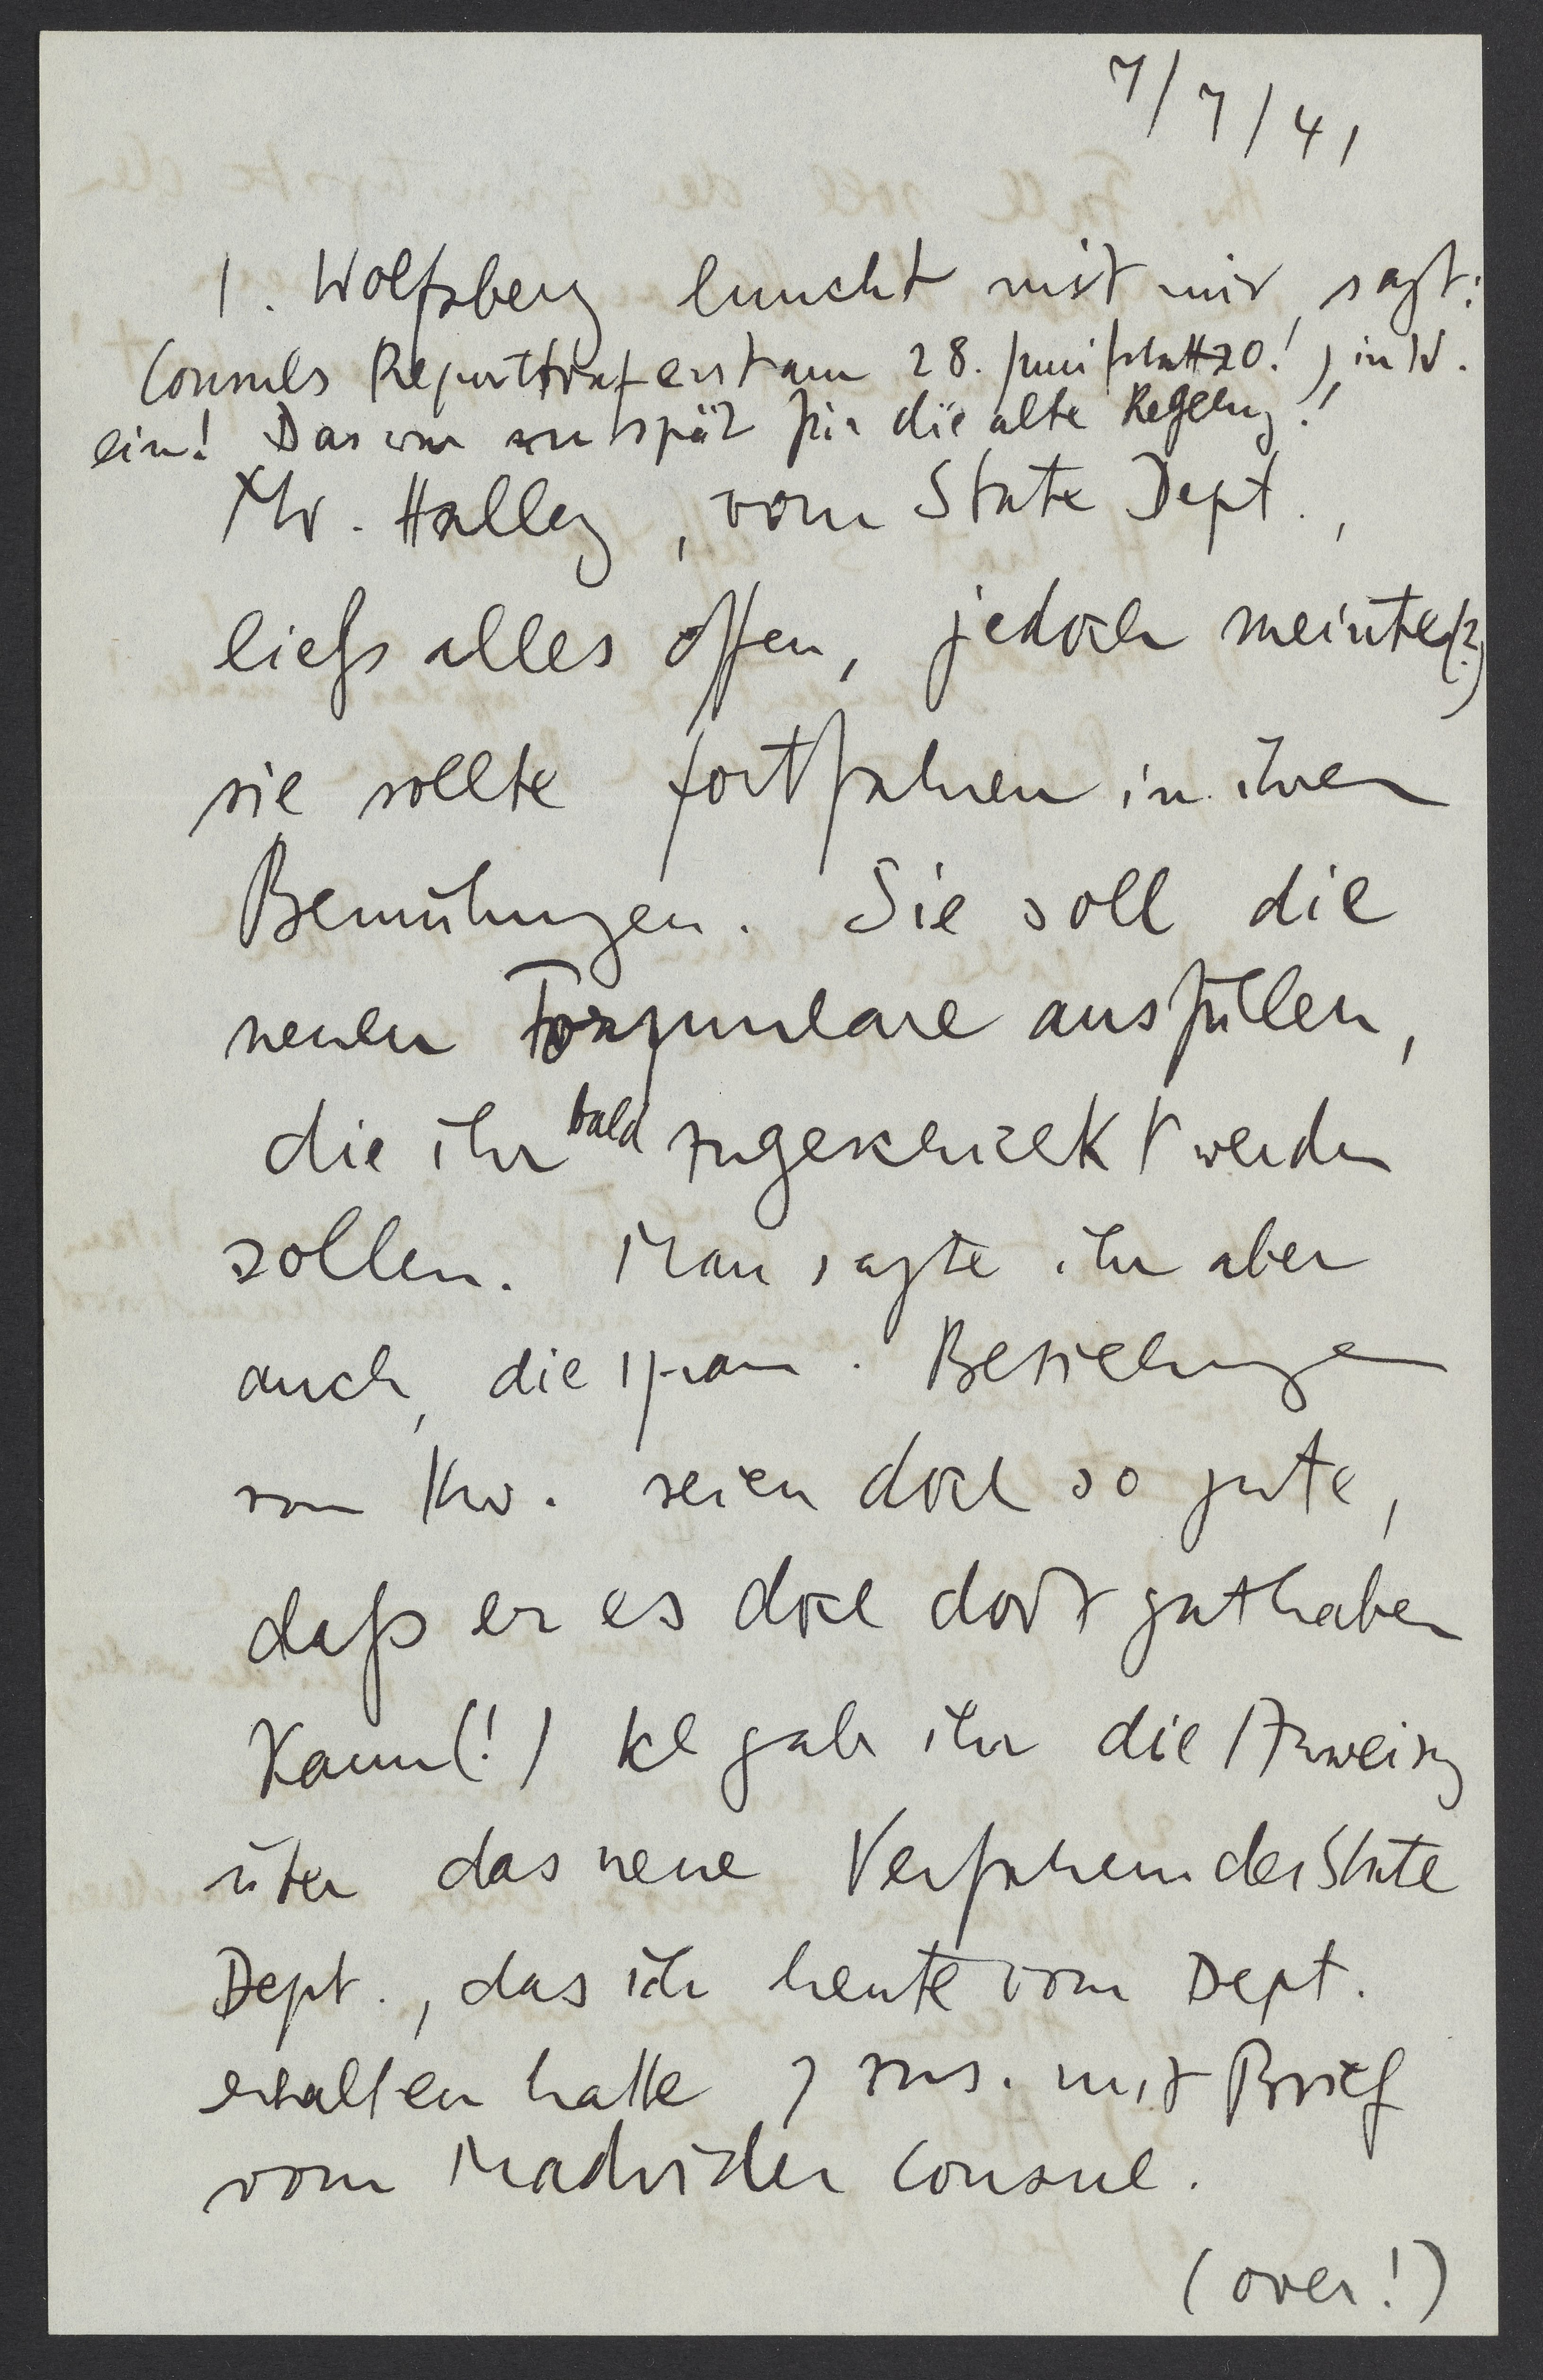 7/7/41
1. Wolfsberg luncht mit mir, sagt:
Consuls Report traf erst am 28. Juni (statt 20.!), in W.
ein! Das war zu spät für die alte Regelung!
Mr. Halley, vom State Dept.,
liess alles offen, jedoch meinte (?)
sie sollte fortfahren in ihren
Bemühungen. Sie soll die
neuen Formulare ausfüllen,
die ihr bald zugeschickt werden
sollen. Man sagte ihr aber
auch, die span. Beziehungen
von Kw. seien doch so gute,
daß er es doch dort gut haben
kann (!) Ich gab ihr die Anweisg
über das neue Verfahren der State
Dept., das ich heute vom Dept.
erhalten hatte, zus. mit Brief
vom Madrider Consul.
(over!)